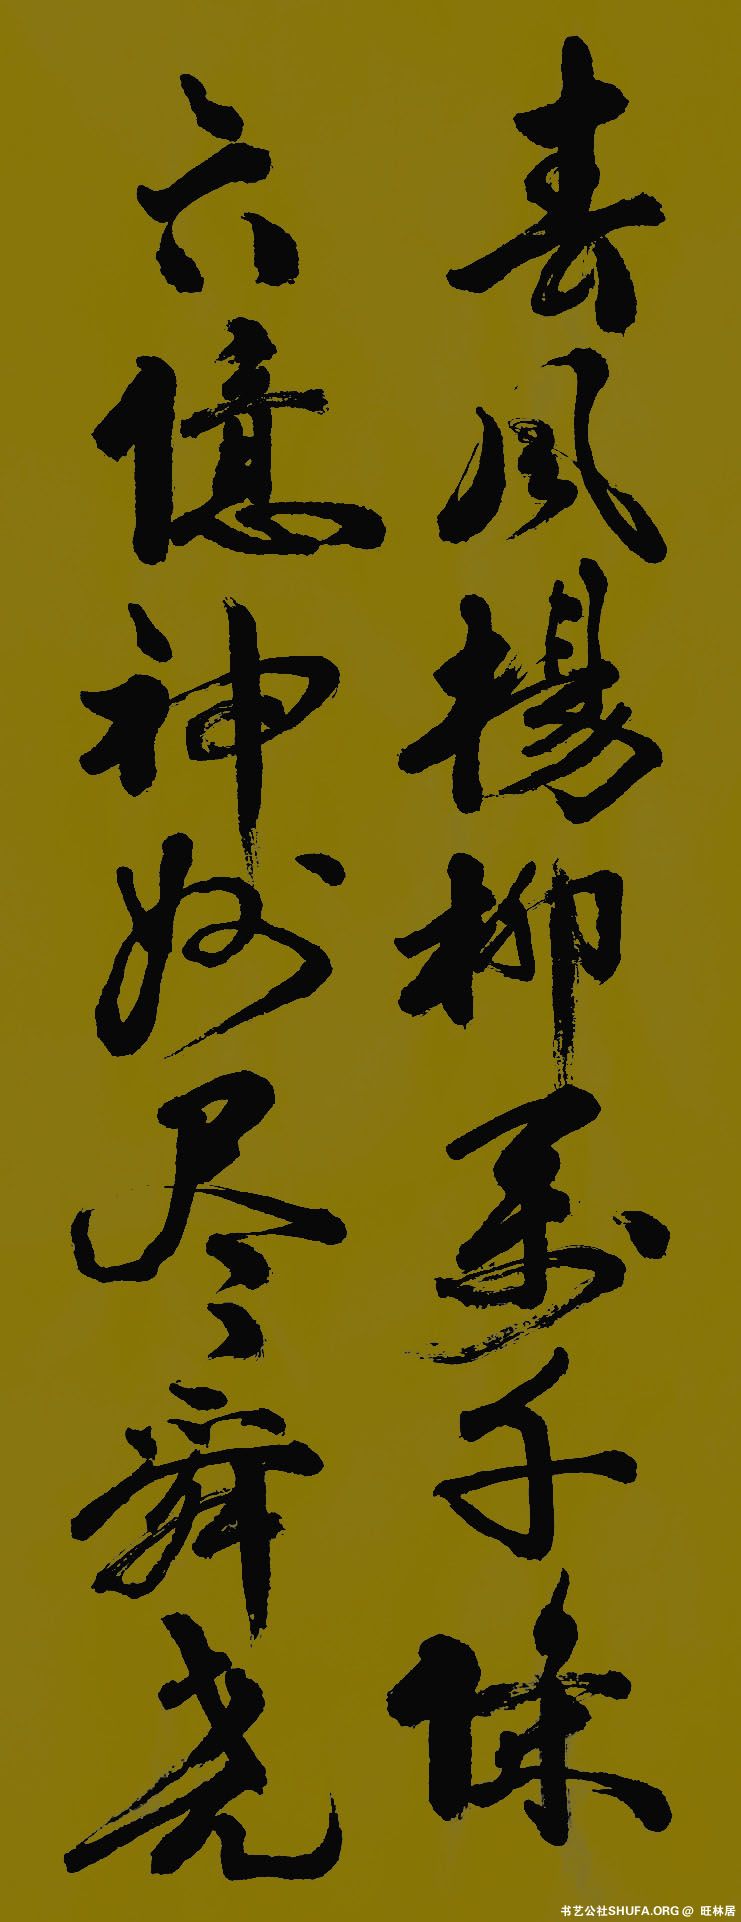 春风楊柳万千條
六億神州尽舜尧
书艺公社SHUFA.ORG @ 旺林居